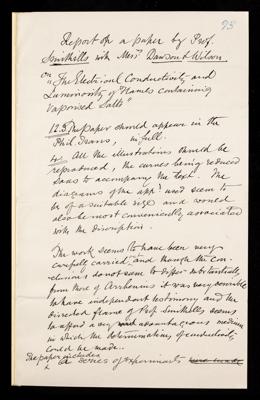 95
Report on a paper by Prof.
Smithells with Messrs Dawson & Wilson
on "The Electrical Conductivity and
Luminosity of Flames containing
Vaporised Salts"
1.2.3. The paper should appear in the
Phil. Trans, in full.
4. All the illustrations should be
reproduced, the curves being reduced
so as to accompany the text. The
diagrams of the appts. seem to
be of a suitable size and would
also be most conveniently associated
with the description.
The work seems to have been very
carefully carried, and though the con-
clusions do not seem to differ substantially
from those of Arrhenius it was very desirable
to have independent testimony and the
dissected flame of Prof Smithells seems
to afford a very advantageous medium
in which the determinations of conductivity
could be made.
The paper includes
a series of experiments